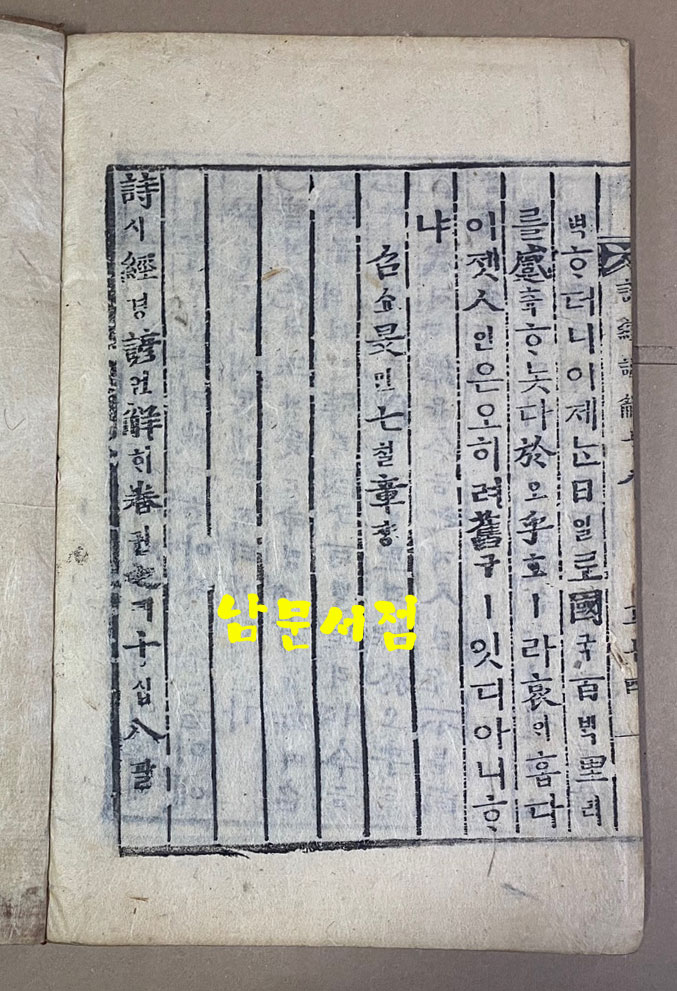 詩經諺解十八
벽ᄒᆞ더니이제ᄂᆞᆫ日일로國국百ᄇᆡᆨ里리
를蹙츅ᄒᆞᄂᆞᆺ다於오乎호ㅣ라哀ᄋᆡ홉다
이젯人인은오히려舊구ㅣ잇디아니ᄒᆞ
냐
召쇼旻민七칠章쟝
詩시經경諺언解ᄒᆡ卷권之지十십八팔
남문서점